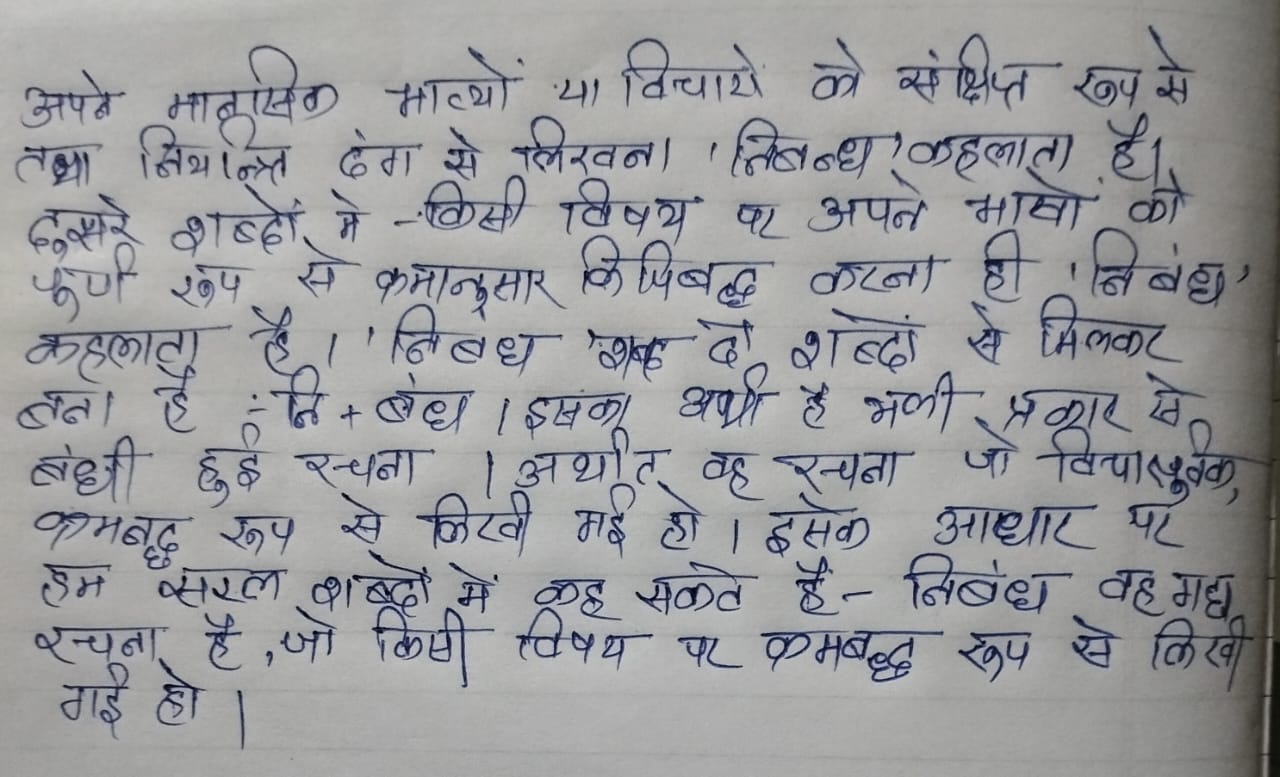 अपने मानसिक भाव्यों या विचारों को संक्षिप्त रूप से
तथा नियन्त्रि ढंग से लिखना 'निबन्ध' कहलाता है।
दुसरे शब्दों मे - किसी विषय पर अपने भावों को
पूर्ण रूप से क्रमानुसार लिपिबद्ध करना ही 'निबंध'
कहलाता है। 'निबंध' शब्द दो शब्दों से मिलकर
बना है :- नि + बंध। इसका अर्थ है भली प्रकार से
बंधी हुई रचना। अर्थात वह रचना जो विचारपूर्वक,
क्रमबद्ध रूप से लिखी गई हो। इसके आधार पर
हम सरल शब्दों में कह सकते हैं- निबंध वह गद्य
रचना है, जो किसी विषय पर क्रमबद्ध रूप से लिखी
गई हो।